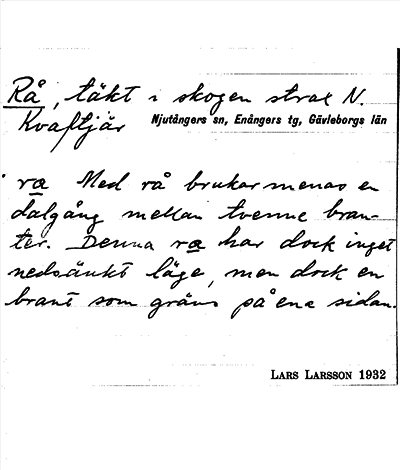 Rå, täkt i skogen strax N.
Kvaftjär Njutångers sn, Enångers tg, Gävleborgs län
ra Med rå brukar menas en
dalgång mellan tvenne bran-
ter. Denna ra har dock inget
nedsänkt läge, men dock en
brant som gräns på ena sidan.
LARS LARSSON 1932